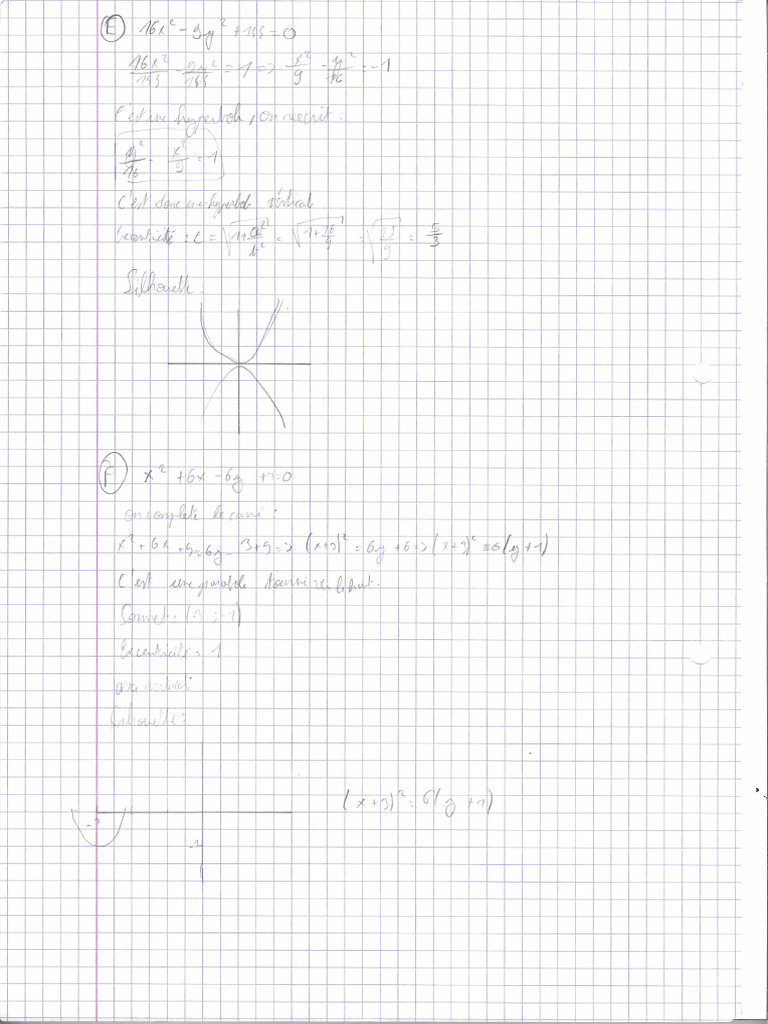 E 16x² - 9y² + 144 = 0
16x²/144 - 9y²/144 = -1 => x²/9 - y²/16 = -1
C'est une hyperbole, on reecrit :
y²/16 - x²/9 = 1
C'est donc une hyperbole vertical
Excentricité : c = √(1+a²/b²) = √(1+16/9) = √(25/9) = 5/3
Silhouette :
F x² + 6x - 6y + = 0
on complete le carré :
x² + 6x + 9 = 6y - 3 + 9 => (x+3)² = 6y + 6 => (x+3)² = 6(y+1)
C'est une parabole tournée vers le haut.
Sommet : (-3 ; -1)
Excentricité = 1
axe vertical
Silhouette :
(x+3)² = 6(y+1)
-3
-1